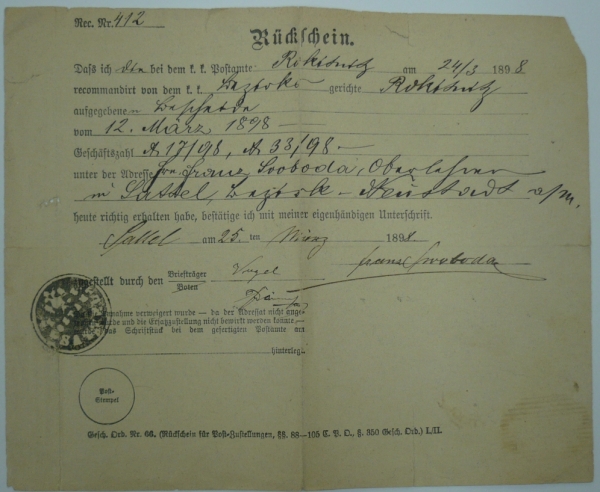 Rec. Nr. 412
Rückschein.
Dass ich die bei dem k. k. Postamte Rokitnitz am 24/3 1898.
recommandirt von dem k. k. Bezirks gerichte Rokitnitz
aufgegebenen Bescheide
vom 12. März 1898
Geschäftszahl A 17/98, A 33/98
unter der Adresse Franz Svoboda, Oberlehrer
in Sattel, Bezirk Neustadt a/m.
heute richtig erhalten habe, bestätige ich mit meiner eigenhändigen Unterschrift.
Sattel am 25. ten März 1898.
Franz Swoboda
Zugestellt durch den Briefträger
Boten
Annahme verweigert wurde – da der Adressat nicht ange-
wurde und die Ersatzzustellung nicht bewirkt werden konnte,
wurde das Schriftstück bei dem gefertigten Postamte am
hinterlegt.
Post-
Stempel
Gesch. Ord. Nr. 66. (Rückschein für Post-Zustellungen, §§. 88—105 C. P. O., §. 350 Gesch. Ord.) I./II.